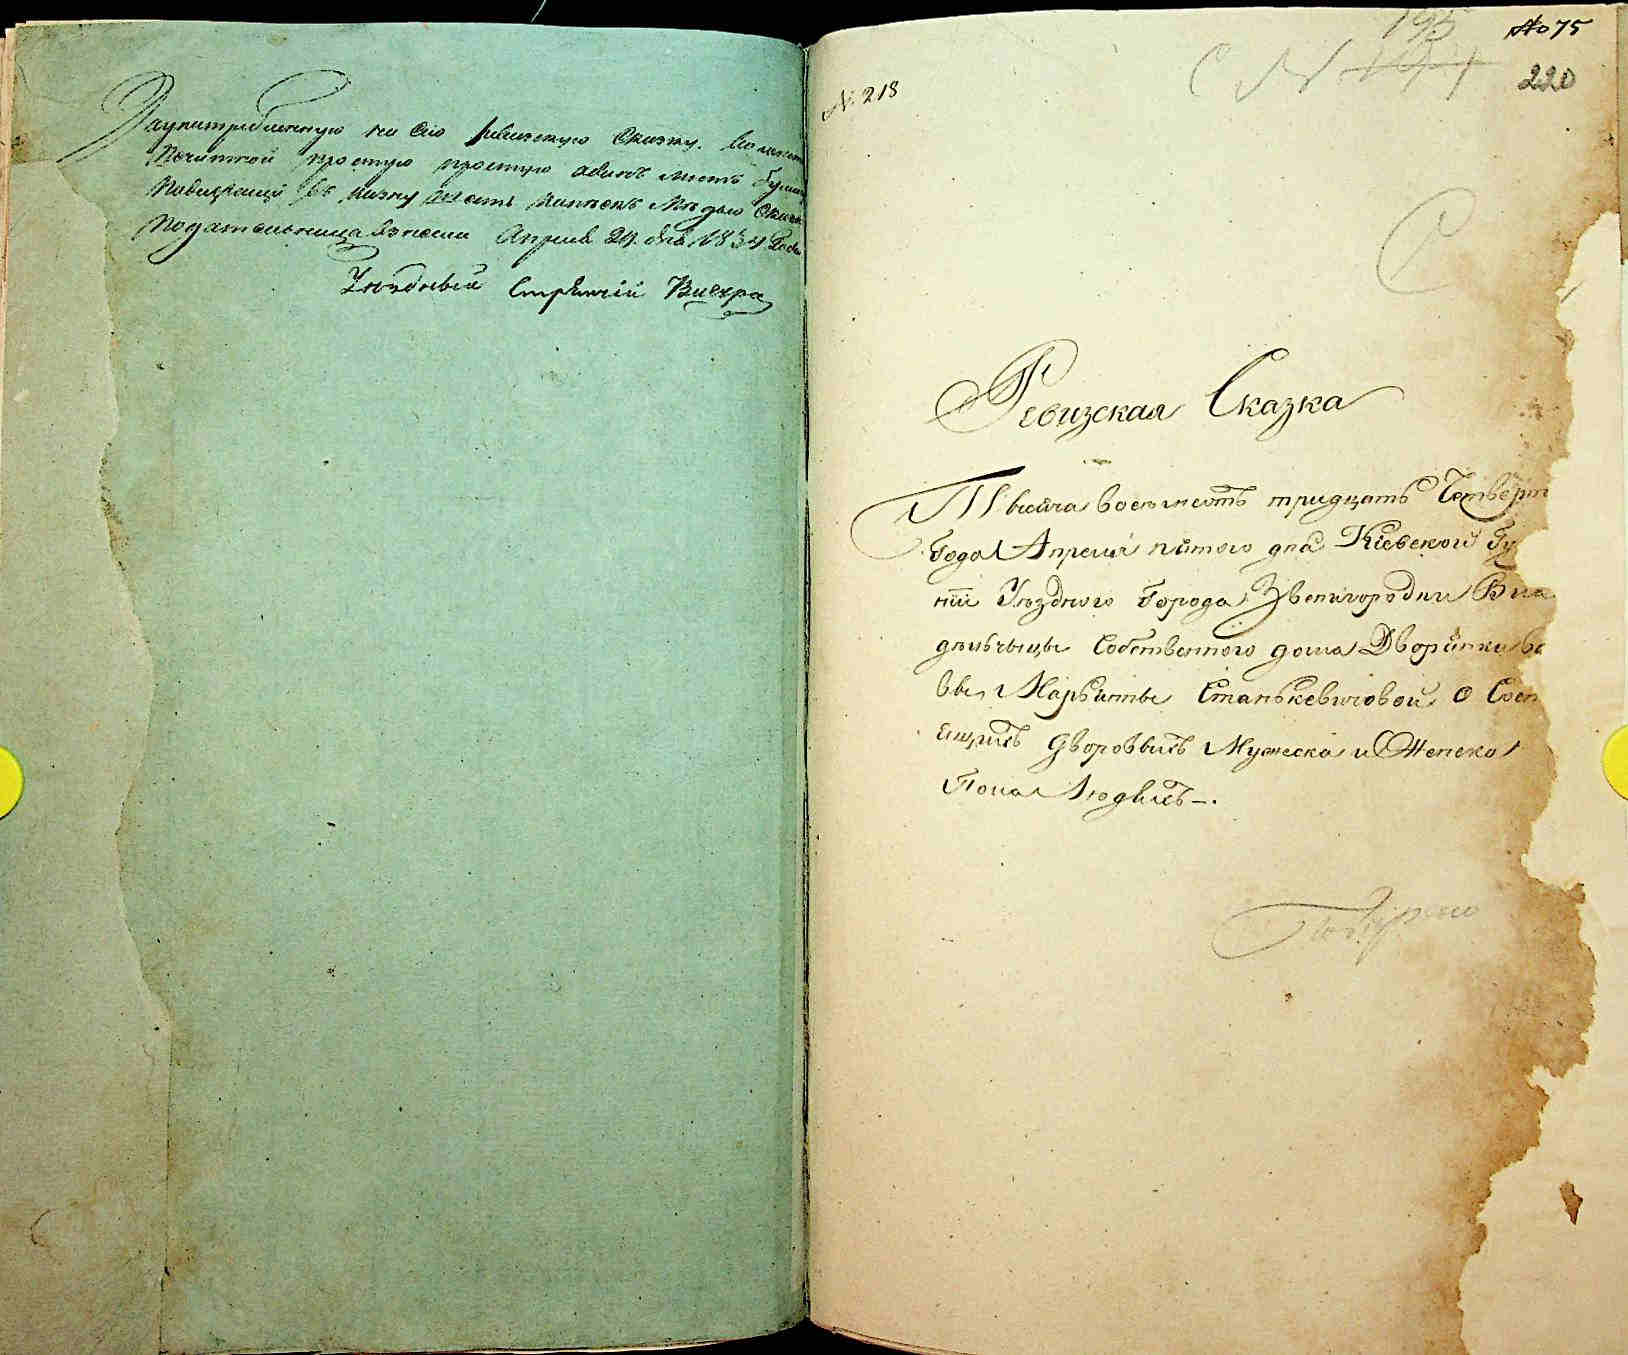 Заупитребленную на сію ревизскую Сказку. вмѣсто
простую простую одинъ листъ бумаги
въ казну шесть копѣекъ мѣдью
подательница взнесли Апреля 24. дня 1834 Года
Уѣздный Стряпчій
№ 218
195
№ 75
220
Ревизская Сказка
Тысяча восемьсотъ тридцать Четверт
Года Апреля пятого дня Кіевской Гу
ніи Уѣзднаго Города Звенигородки Вла
дѣльчыцы Собственного дома Дворянки вд
вы Маріянны Станькевичовой о Сост
ящихъ дворовыхъ Мужеска и Женска
Пола Людяхъ —.